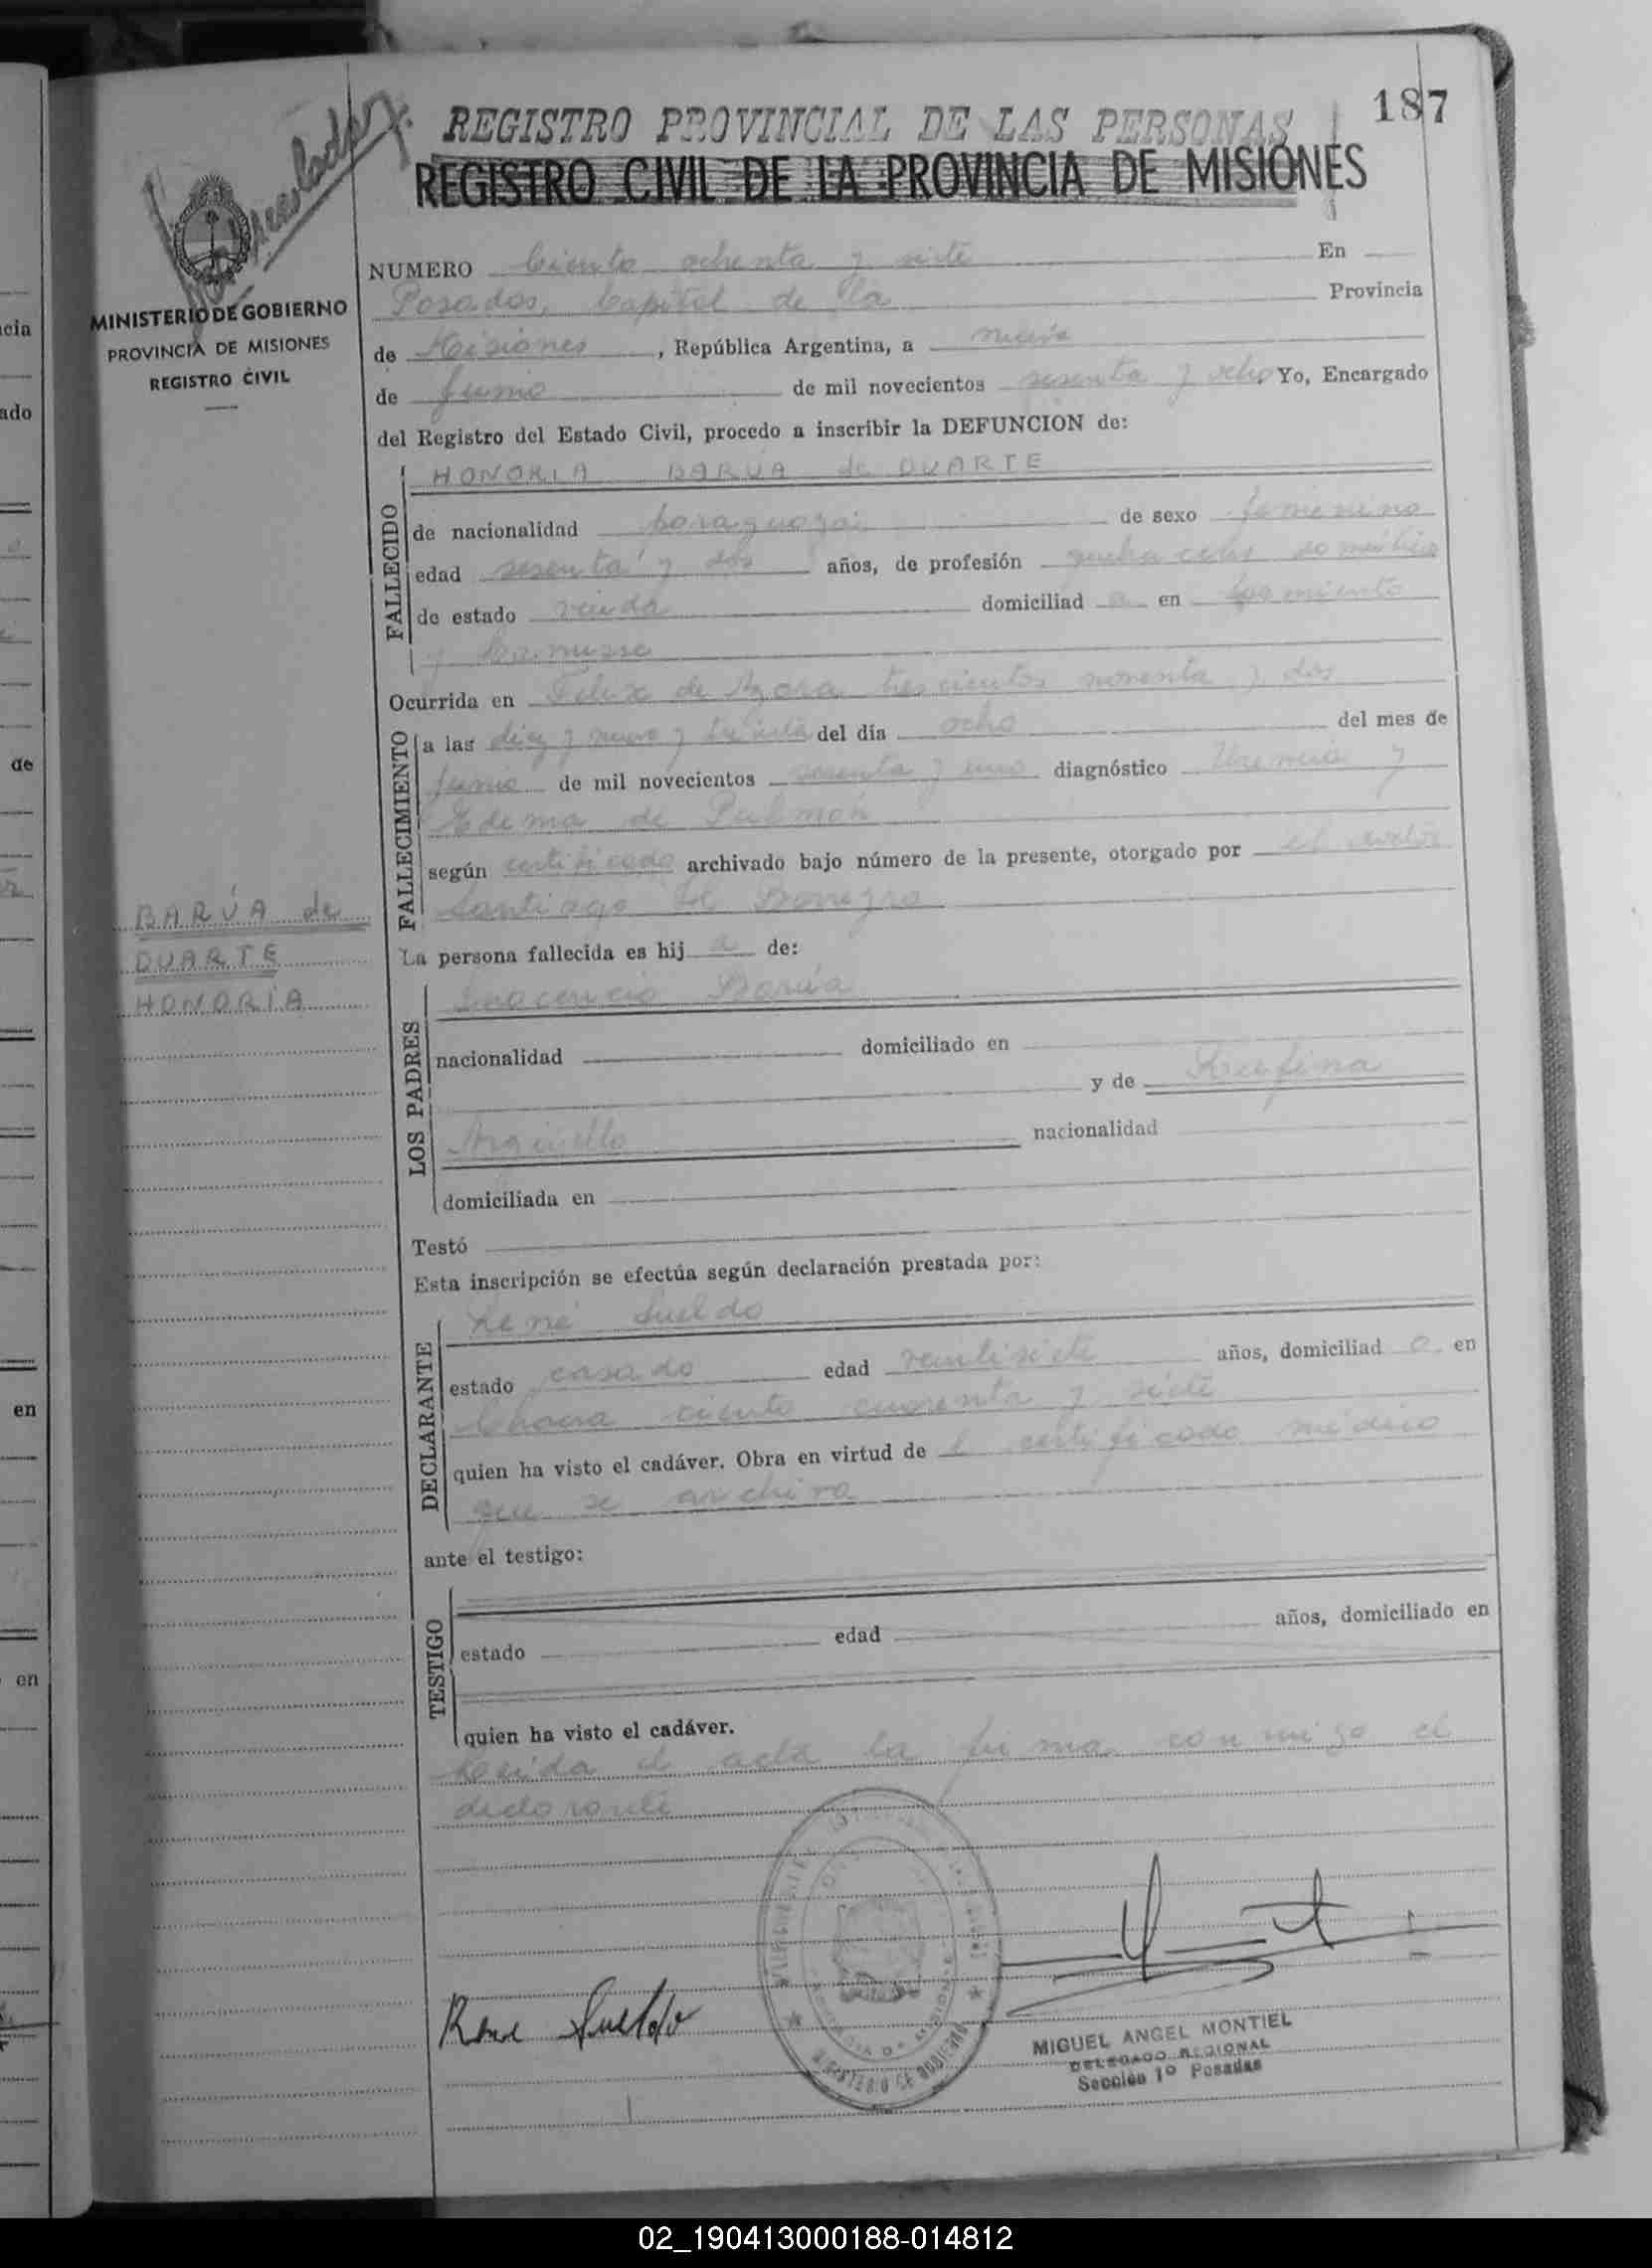 187
REGISTRO PROVINCIAL DE LAS PERSONAS
REGISTRO CIVIL DE LA PROVINCIA DE MISIONES
MINISTERIO DE GOBIERNO
PROVINCIA DE MISIONES
REGISTRO CIVIL
NUMERO Ciento ochenta y siete En
Posadas, Capital de la Provincia
de Misiones, República Argentina, a nueve
de Junio de mil novecientos sesenta y ocho Yo, Encargado
del Registro del Estado Civil, procedo a inscribir la DEFUNCION de:
FALLECIDO
HONORIA BARÚA de DUARTE
de nacionalidad paraguaya de sexo femenino
edad sesenta y dos años, de profesión quehaceres domésticos
de estado viuda domiciliad a en
y
Ocurrida en Félix de Azara trescientos noventa y dos
FALLECIMIENTO
a las diez y nueve y treinta del día ocho del mes de
Junio de mil novecientos y diagnóstico Uremia y
Edema de Pulmón
según certificado archivado bajo número de la presente, otorgado por el
Santiago
BARÚA de
DUARTE
HONORIA
La persona fallecida es hij a de:
LOS PADRES
Inocencio Barúa
nacionalidad domiciliado en
y de Rufina
Arguello
nacionalidad
domiciliada en
Testó
Esta inscripción se efectúa según declaración prestada por:
DECLARANTE
René Sueldo
estado casado edad veintisiete años, domiciliad o en
Chacra ciento cuarenta y siete
quien ha visto el cadáver. Obra en virtud de l certificado médico
que se archiva
ante el testigo:
TESTIGO
estado edad años, domiciliado en
quien ha visto el cadáver.
Leída el acta la firma conmigo el
declarante
Rene Sueldo
MIGUEL ANGEL MONTIEL
DELEGADO REGIONAL
Sección 1º Posadas
02_190413000188-014812